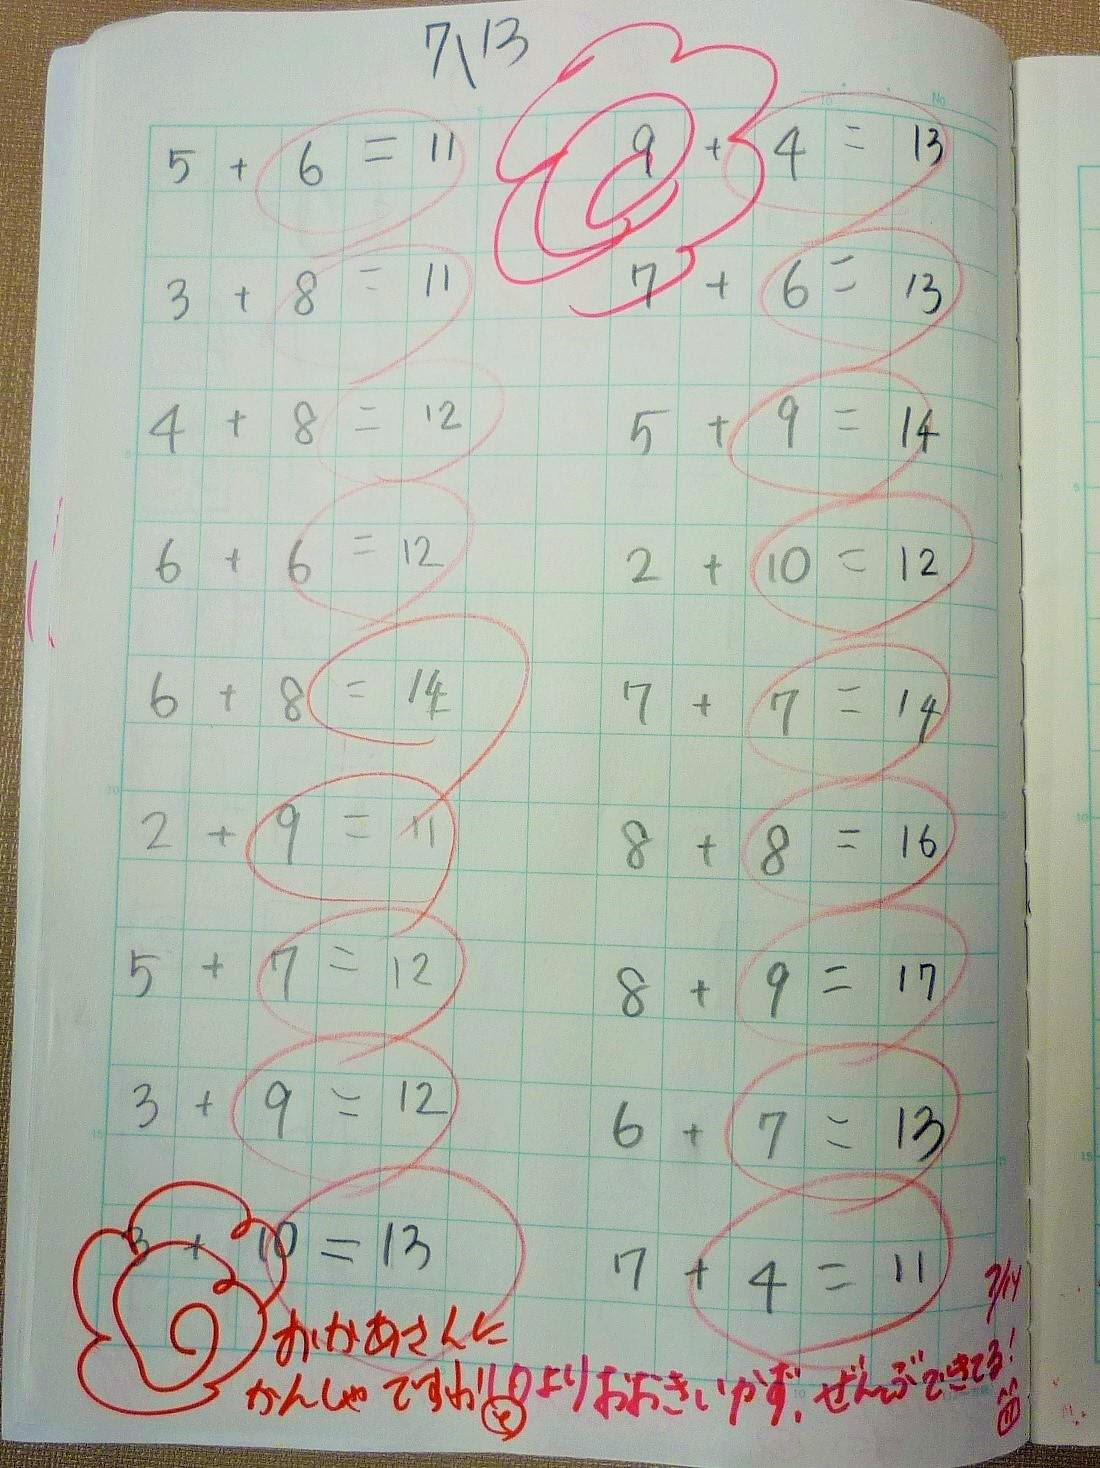 7\13
5 + 6 = 11
3 + 8 = 11
4 + 8 = 12
6 + 6 = 12
6 + 8 = 14
2 + 9 = 11
5 + 7 = 12
3 + 9 = 12
3 + 10 = 13
9 + 4 = 13
7 + 6 = 13
5 + 9 = 14
2 + 10 = 12
7 + 7 = 14
8 + 8 = 16
8 + 9 = 17
6 + 7 = 13
7 + 4 = 11
7/14
おかあさんに
かんしゃですね!10よりおおきいかず、ぜんぶできてる!